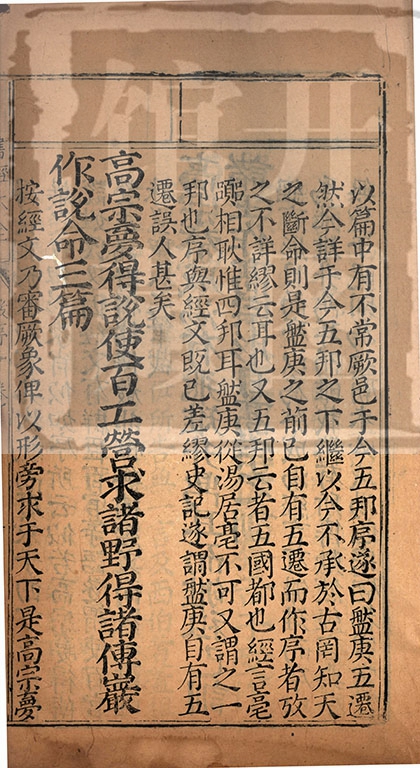 以篇中有不常厥邑于今五邦序遂曰盤庚五遷
然今詳于今五邦之下繼以今不承於古罔知天
之斷命則是盤庚之前已自有五遷而作序者攷
之不詳繆云耳也又五邦云者五國都也經言亳
囂相耿惟四邦耳盤庚從湯居亳不可又謂之一
邦也序與經文既已差繆史記遂謂盤庚自有五
遷誤人甚矣
高宗夢得說使百工營求諸野得諸傅巖
作說命三篇
按經文乃審厥象俾以形旁求于天下是高宗夢